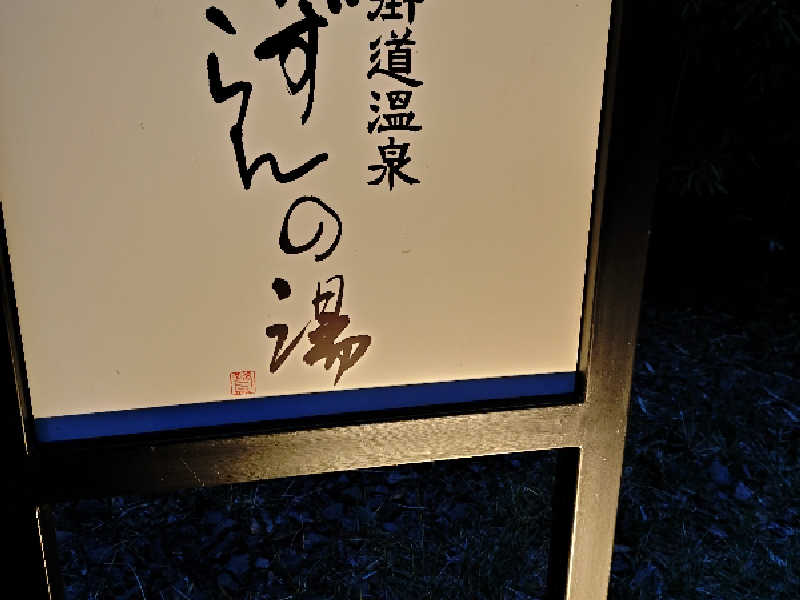 街道温泉
ずらんの湯